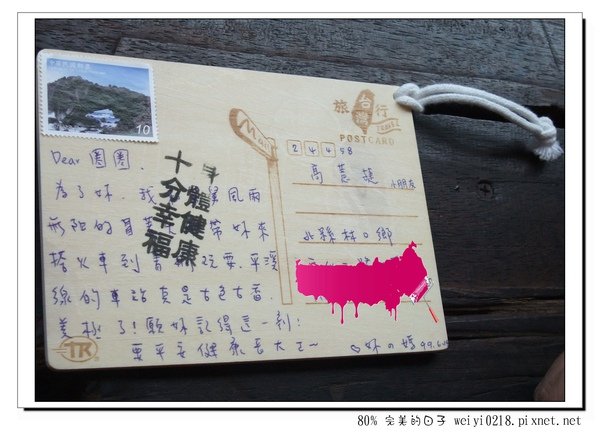 中華民國郵票
10
旅台灣行
POSTCARD
Mail
24458
高薏婕 小朋友
北縣林口鄉
Dear 圈圈.
為了妳,我 風雨
無阻的冒著 帶妳來
搭火車到菁桐玩耍.平溪
線的車站真是古色古香.
美極了!願妳記得這一刻!
要平安健康長大ㄛ~
♡妳の媽 99.6
十分幸福
身體健康
TR
80% 完美的日子 weiyi0218.pixnet.net